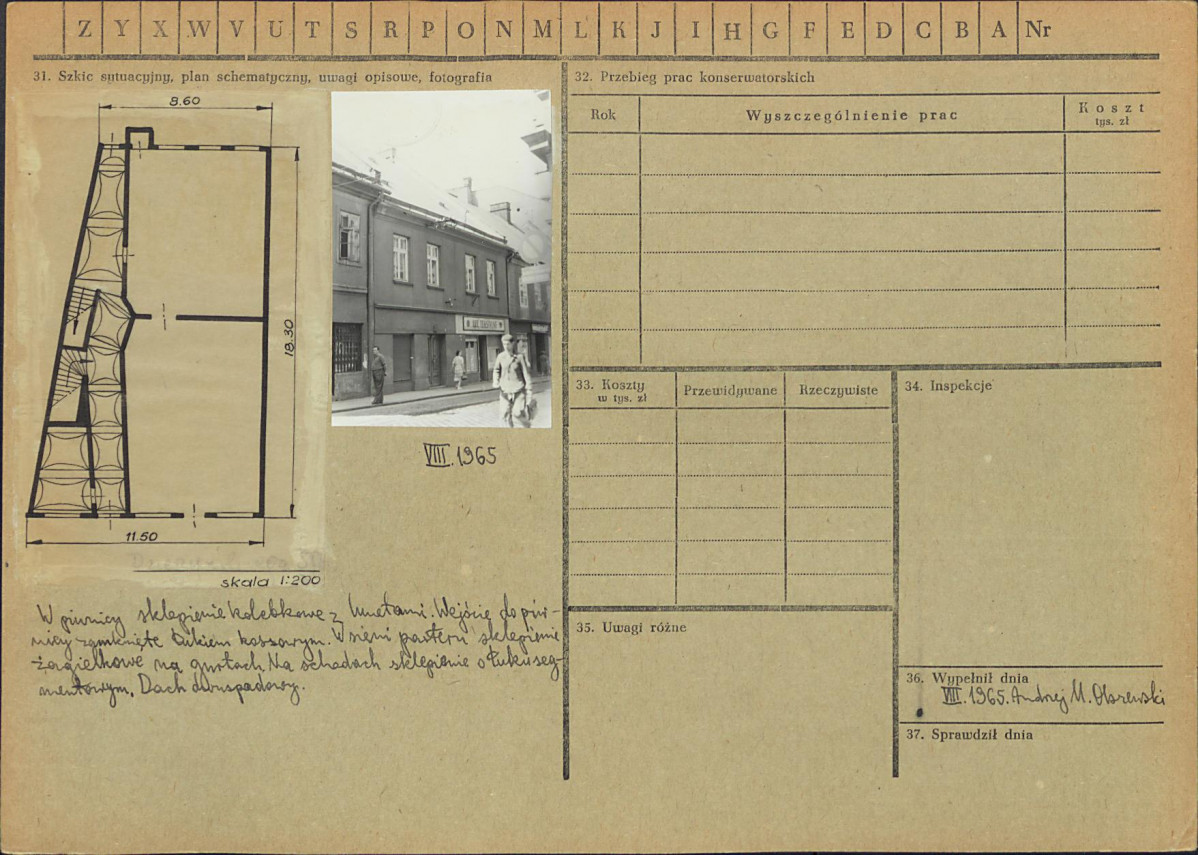 Z Y X W V U T S R P O N M L K J I H G F E D C B A Nr
31. Szkic sytuacyjny, plan schematyczny, uwagi opisowe, fotografia
8.60
18.30
11.50
skala 1:200
VIII.1965
W piwnicy sklepienie kolebkowe z lunetami. Wejście do piw-
nicy zamknięte łukiem koszowym. W sieni parteru sklepienie
żagielkowe na gurtach. Na schodach sklepienie o łuku seg-
mentowym. Dach dwuspadowy.
32. Przebieg prac konserwatorskich
Rok Wyszczególnienie prac Koszt
tys. zł
33. Koszty
w tys. zł
Przewidywane Rzeczywiste
34. Inspekcje
35. Uwagi różne
36. Wypełnił dnia
VIII.1965. Andrzej M. Olszewski
37. Sprawdził dnia